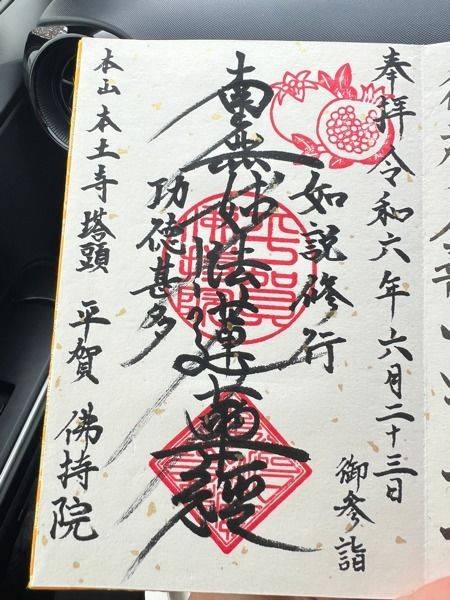 奉拝 令和六年六月二十三日
御参詣
如説修行
南無妙法蓮華経
功徳甚多
本山 本土寺塔頭 平賀 佛持院